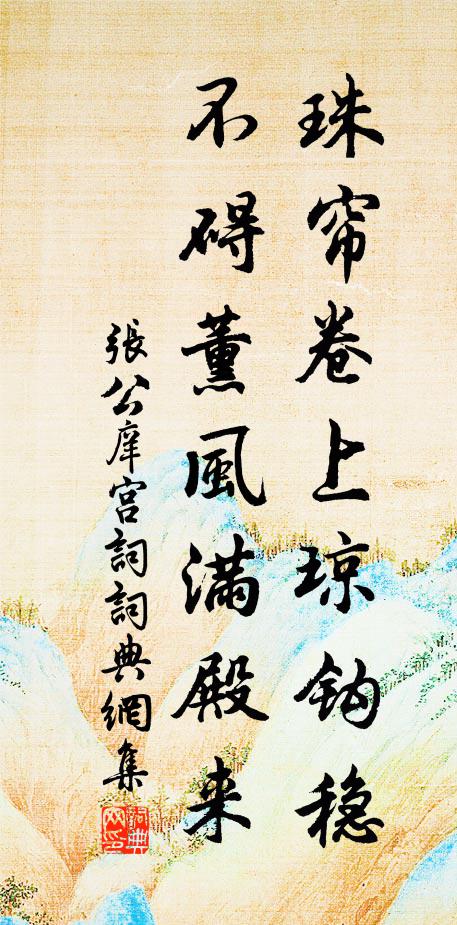 珠帘卷上琼钩稳
不碍薰風满殿来
張公庠宫詞詞典網集
詞典
网印